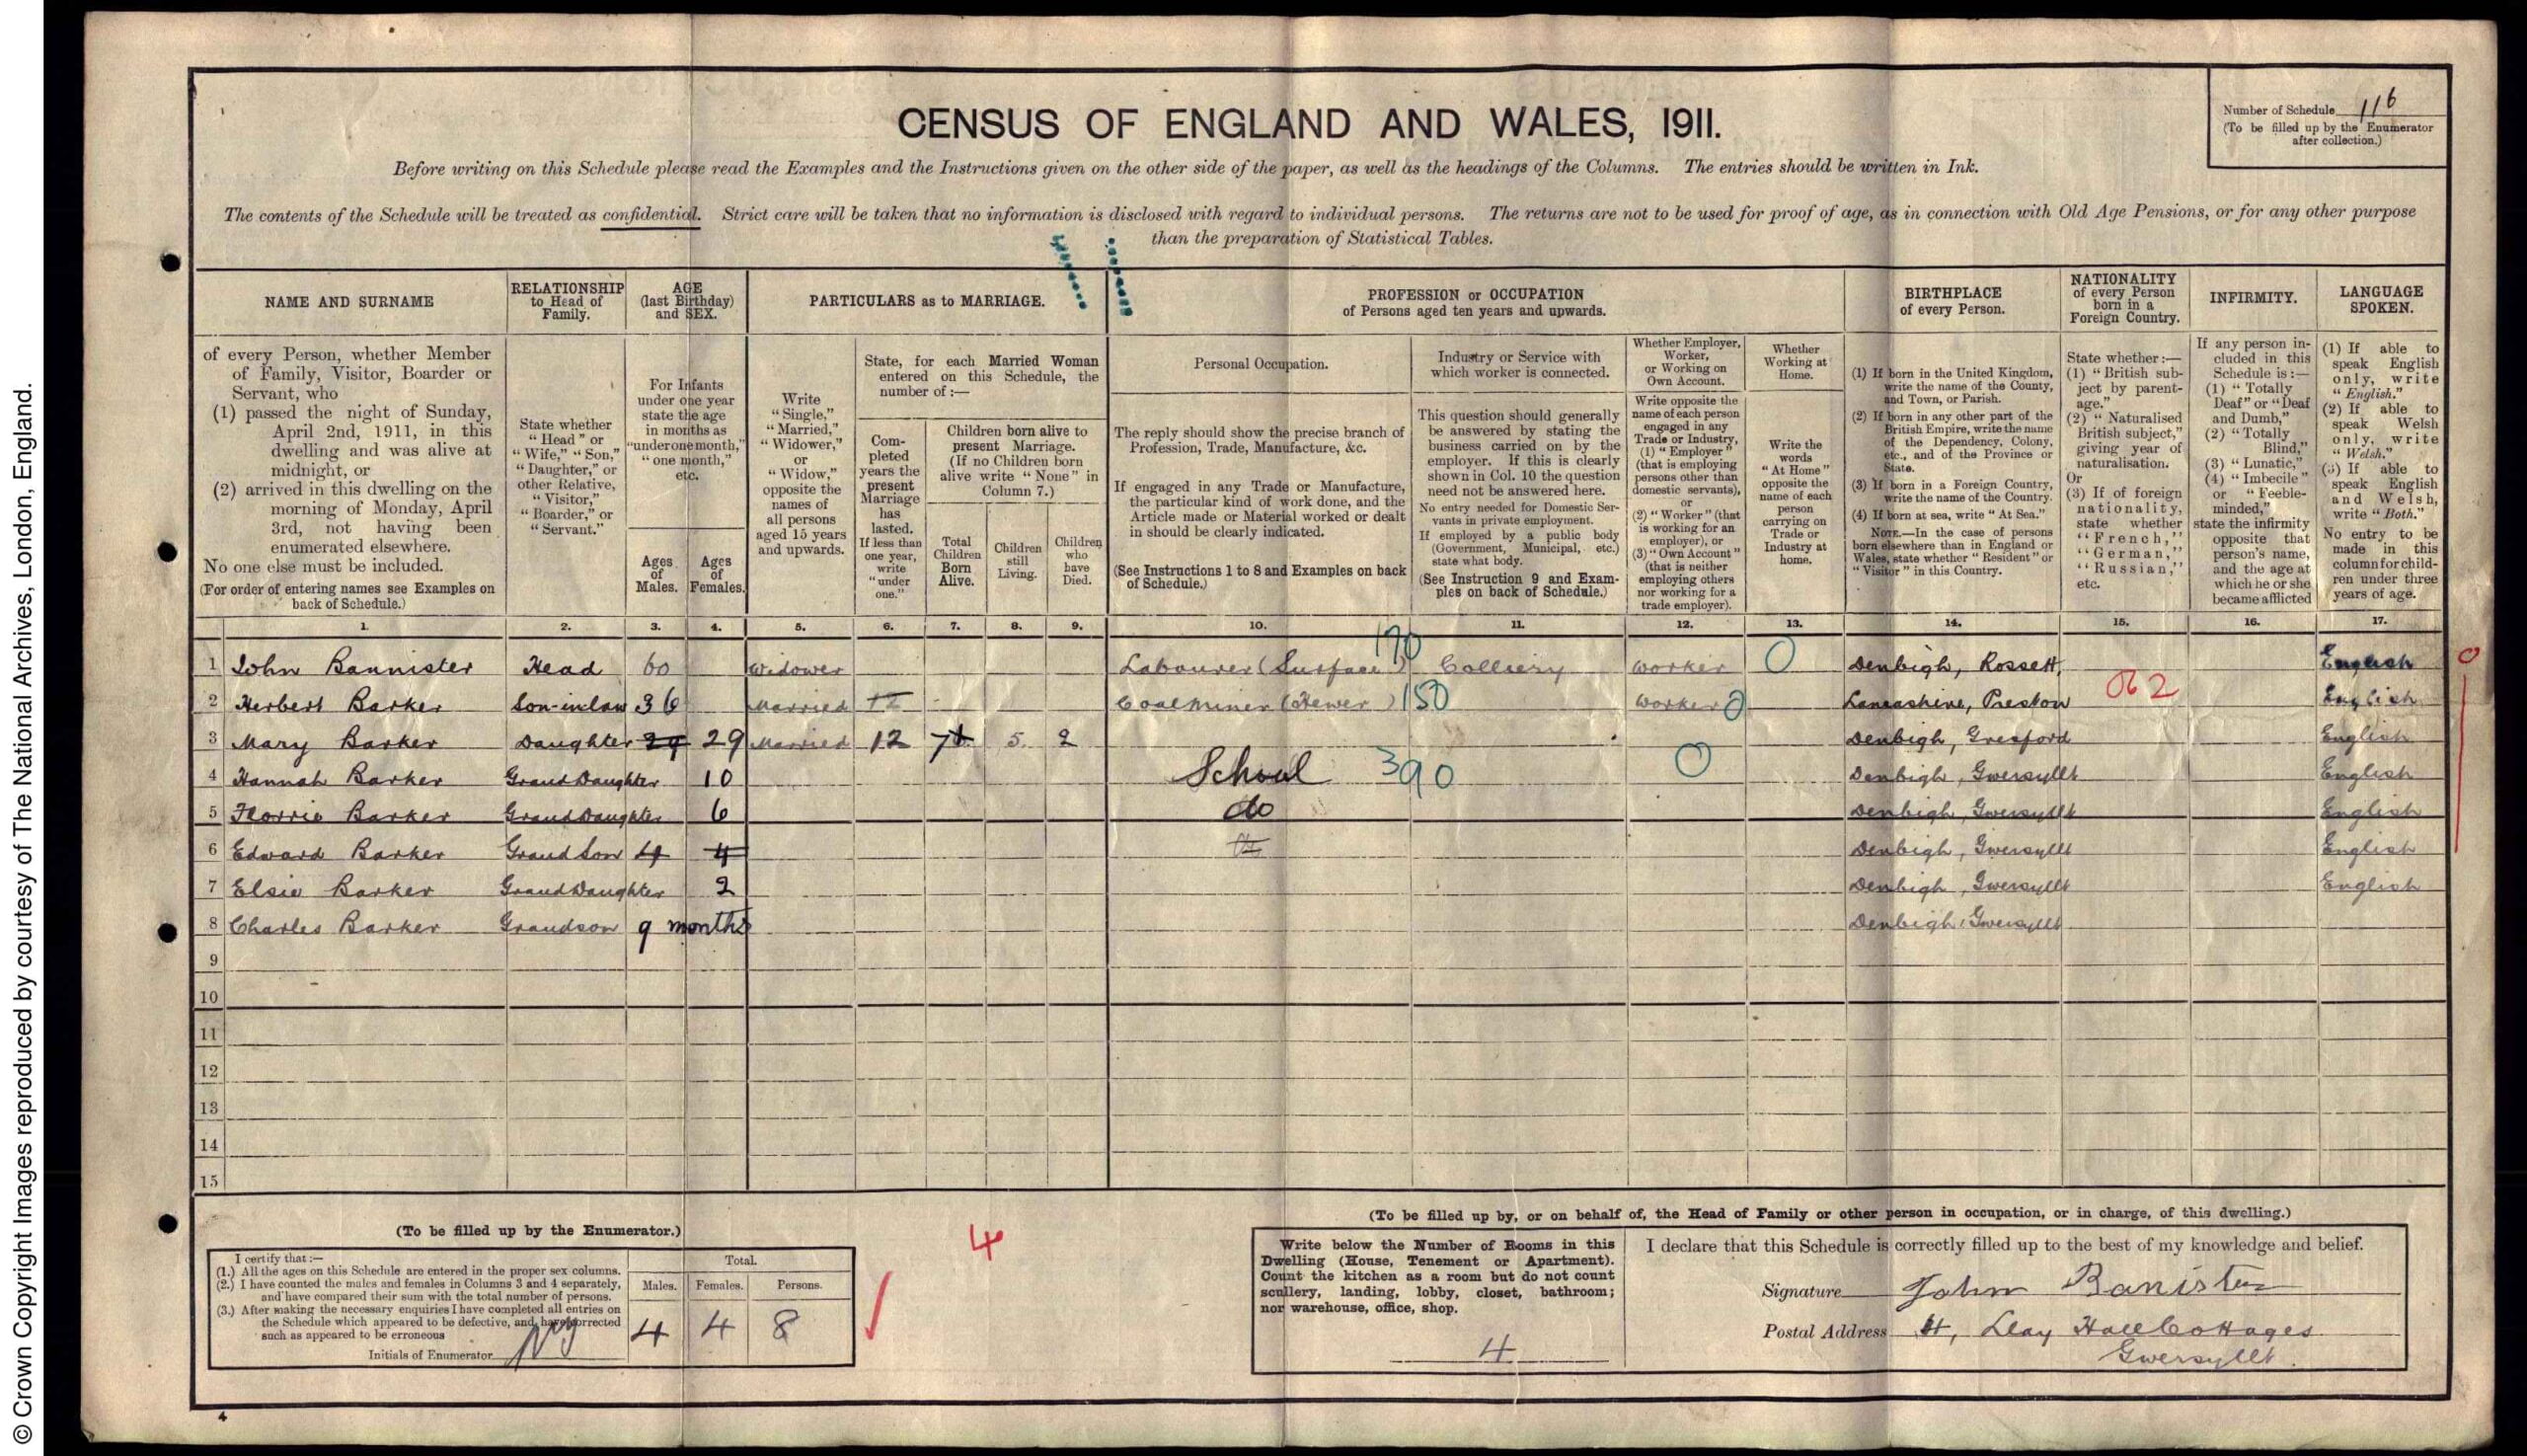 © Crown Copyright Images reproduced by courtesy of The National Archives, London, England.
CENSUS OF ENGLAND AND WALES, 1911.
Number of Schedule 116
(To be filled up by the Enumerator
after collection.)
Before writing on this Schedule please read the Examples and the Instructions given on the other side of the paper, as well as the headings of the Columns. The entries should be written in Ink.
The contents of the Schedule will be treated as confidential. Strict care will be taken that no information is disclosed with regard to individual persons. The returns are not to be used for proof of age, as in connection with Old Age Pensions, or for any other purpose
than the preparation of Statistical Tables.
NAME AND SURNAME
of every Person, whether Member
of Family, Visitor, Boarder or
Servant, who
(1) passed the night of Sunday,
April 2nd, 1911, in this
dwelling and was alive at
midnight, or
(2) arrived in this dwelling on the
morning of Monday, April
3rd, not having been
enumerated elsewhere.
No one else must be included.
(For order of entering names see Examples on
back of Schedule.)
RELATIONSHIP
to Head of
Family.
State whether
"Head" or
"Wife," "Son,"
"Daughter," or
other Relative,
"Visitor,"
"Boarder," or
"Servant."
AGE
(last Birthday)
and SEX.
For Infants
under one year
state the age
in months as
"under one month,"
"one month,"
etc.
Ages
of
Males.
Ages
of
Females.
PARTICULARS as to MARRIAGE.
Write
"Single,"
"Married,"
"Widower,"
or
"Widow,"
opposite the
names of
all persons
aged 15 years
and upwards.
State, for each Married Woman
entered on this Schedule, the
number of :—
Com-
pleted
years the
present
Marriage
has
lasted.
If less than
one year,
write
"under
one."
Children born alive to
present Marriage.
(If no Children born
alive write "None" in
Column 7.)
Total
Children
Born
Alive.
Children
still
Living.
Children
who
have
Died.
PROFESSION or OCCUPATION
of Persons aged ten years and upwards.
Personal Occupation.
The reply should show the precise branch of
Profession, Trade, Manufacture, &c.
If engaged in any Trade or Manufacture,
the particular kind of work done, and the
Article made or Material worked or dealt
in should be clearly indicated.
(See Instructions 1 to 8 and Examples on back
of Schedule.)
Industry or Service with
which worker is connected.
This question should generally
be answered by stating the
business carried on by the
employer. If this is clearly
shown in Col. 10 the question
need not be answered here.
No entry needed for Domestic Ser-
vants in private employment.
If employed by a public body
(Government, Municipal, etc.)
state what body.
(See Instruction 9 and Exam-
ples on back of Schedule.)
Whether Employer,
Worker,
or Working on
Own Account.
Write opposite the
name of each person
engaged in any
Trade or Industry,
(1) "Employer"
(that is employing
persons other than
domestic servants),
or
(2) "Worker" (that
is working for an
employer), or
(3) "Own Account"
(that is neither
employing others
nor working for a
trade employer).
Whether
Working at
Home.
Write the
words
"At Home"
opposite the
name of each
person
carrying on
Trade or
Industry at
home.
BIRTHPLACE
of every Person.
(1) If born in the United Kingdom,
write the name of the County,
and Town, or Parish.
(2) If born in any other part of the
British Empire, write the name
of the Dependency, Colony,
etc., and of the Province or
State.
(3) If born in a Foreign Country,
write the name of the Country.
(4) If born at sea, write "At Sea."
NOTE.—In the case of persons
born elsewhere than in England or
Wales, state whether "Resident" or
"Visitor" in this Country.
NATIONALITY
of every Person
born in a
Foreign Country.
State whether :—
(1) "British sub-
ject by parent-
age."
(2) "Naturalised
British subject,"
giving year of
naturalisation.
Or
(3) If of foreign
nationality,
state whether
"French,"
"German,"
"Russian,"
etc.
INFIRMITY.
If any person in-
cluded in this
Schedule is :—
(1) "Totally
Deaf" or "Deaf
and Dumb,"
(2) "Totally
Blind,"
(3) "Lunatic,"
(4) "Imbecile"
or "Feeble-
minded,"
state the infirmity
opposite that
person's name,
and the age at
which he or she
became afflicted
LANGUAGE
SPOKEN.
(1) If able to
speak English
only, write
"English."
(2) If able to
speak Welsh
only, write
"Welsh."
(3) If able to
speak English
and Welsh,
write "Both."
No entry to be
made in this
column for child-
ren under three
years of age.
1. 2. 3. 4. 5. 6. 7. 8. 9. 10. 11. 12. 13. 14. 15. 16. 17.
1 John Bannister Head 60 Widower Labourer (Surface) 170 Colliery Worker O Denbigh, Rossett, English 0
2 Herbert Barker Son-in-law 36 Married 12 Coal Miner (Hewer) 150 Worker 0 Lancashire, Preston 062 English
3 Mary Barker Daughter 29 29 Married 12 7 5 2 Denbigh, Gresford English
4 Hannah Barker Grand Daughter 10 School 390 0 Denbigh, Gwersyllt English
5 Florrie Barker Grand Daughter 6 do Denbigh, Gwersyllt English
6 Edward Barker Grand Son 4 4 Denbigh, Gwersyllt English
7 Elsie Barker Grand Daughter 2 Denbigh, Gwersyllt English
8 Charles Barker Grandson 9 months Denbigh, Gwersyllt
9
10
11
12
13
14
15
(To be filled up by the Enumerator.)
I certify that :—
(1.) All the ages on this Schedule are entered in the proper sex columns.
(2.) I have counted the males and females in Columns 3 and 4 separately,
and have compared their sum with the total number of persons.
(3.) After making the necessary enquiries I have completed all entries on
the Schedule which appeared to be defective, and have corrected
such as appeared to be erroneous
Initials of Enumerator
Total.
Males. Females. Persons.
4 4 8
4
(To be filled up by, or on behalf of, the Head of Family or other person in occupation, or in charge, of this dwelling.)
Write below the Number of Rooms in this
Dwelling (House, Tenement or Apartment).
Count the kitchen as a room but do not count
scullery, landing, lobby, closet, bathroom;
nor warehouse, office, shop.
4
I declare that this Schedule is correctly filled up to the best of my knowledge and belief.
Signature John Banister
Postal Address 4, Llay Hall Cottages
Gwersyllt.
4